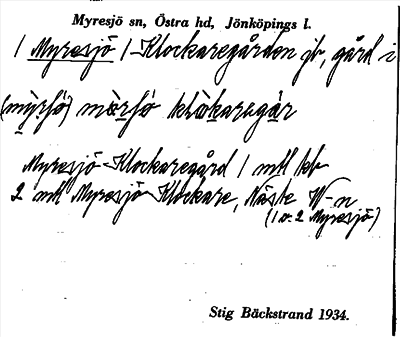 Myresjö sn, Östra hd, Jönköpings l.
1 Myresjö 1 Klockaregården jb, gård i
(mỳrſö) mœ̀rſö klòkaregár
Myresjö Klockaregård 1 mtl kb
2 mtl Myresjö Klockare, Näste W-n
(1 o. 2 Myresjö)
Stig Bäckstrand 1934.